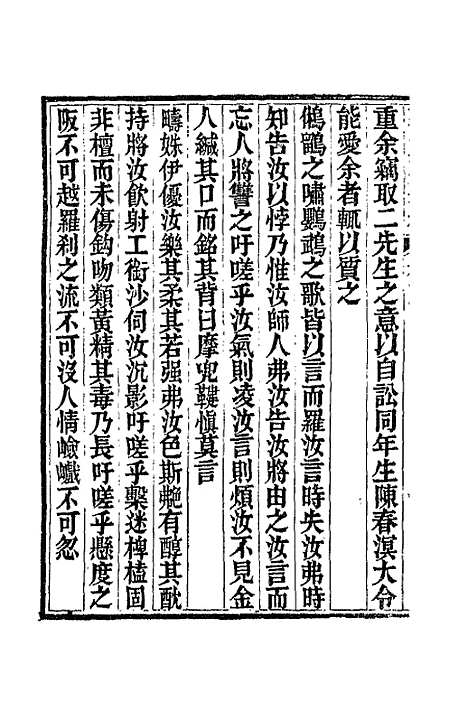 重余竊取二先生之意以自訟同年生陳春溟大令
能愛余者輒以質之
鵂鶹之嘯鸚鵡之歌皆以言而羅汝言時失汝弗時
知告汝以悖乃惟汝師人弗汝告汝將由之汝言而
忘人將讐之吁嗟乎汝氣則凌汝言則煩汝不見金
人緘其口而銘其背曰摩兜鞬慎莫言
疇姝伊優汝樂其柔其若强弗汝色斯艴有醇其酖
持將汝飲射工銜沙伺汝沉影吁嗟乎鑿迷椑榼固
非檀而未傷鈎吻類黃精其毒乃長吁嗟乎懸度之
阪不可越羅刹之流不可沒人情嶮巇不可忽